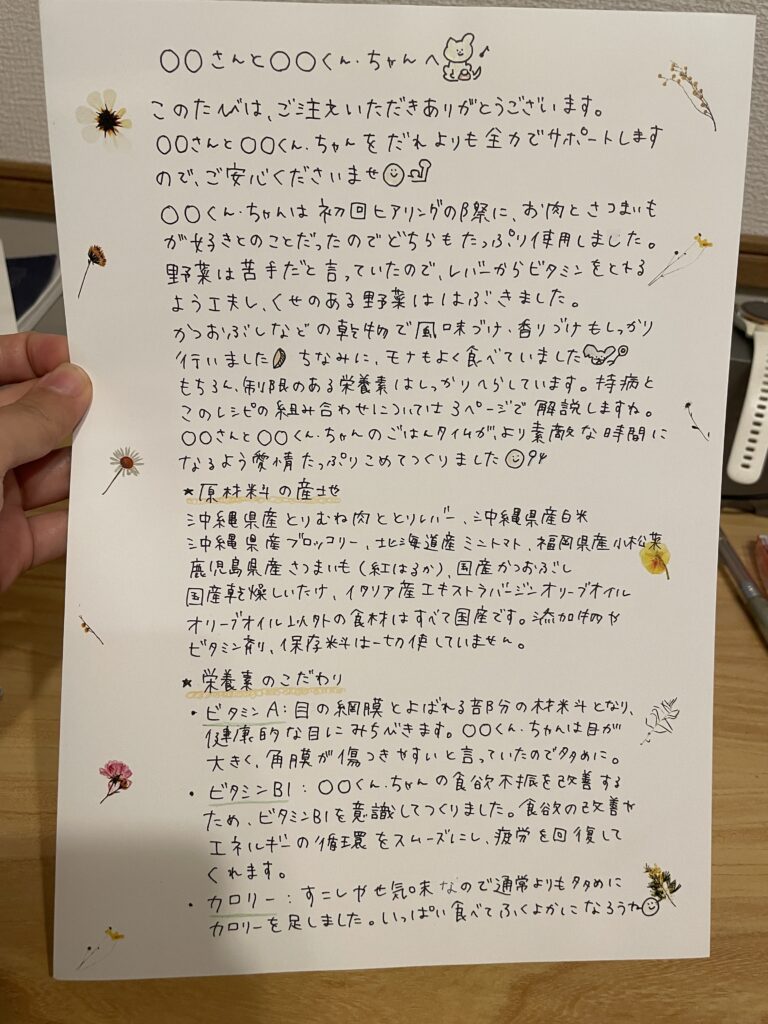 ○○さんと○○くん・ちゃんへ♪
このたびは、ご注文いただきありがとうございます。
○○さんと○○くん・ちゃんをだれよりも全力でサポートします
ので、ご安心くださいませ
○○くん・ちゃんは初回ヒアリングの際に、お肉とさつまいも
が好きとのことだったのでどちらもたっぷり使用しました。
野菜は苦手だと言っていたので、レバーからビタミンをとれる
よう工夫し、くせのある野菜ははぶきました。
かつおぶしなどの乾物で風味づけ・香りづけもしっかり
行いました ちなみに、モナもよく食べていました
もちろん、制限のある栄養素はしっかりへらしています。持病と
このレシピの組み合わせについては3ページで解説しますね。
○○さんと○○くん・ちゃんのごはんタイムが、より素敵な時間に
なるよう愛情たっぷりこめてつくりました
★原材料の産地
沖縄県産とりむね肉ととりレバー、沖縄県産白米
沖縄県産ブロッコリー、北海道産ミニトマト、福岡県産小松菜
鹿児島県産さつまいも(紅はるか)、国産かつおぶし
国産乾燥しいたけ、イタリア産エキストラバージンオリーブオイル
オリーブオイル以外の食材はすべて国産です。添加物や
ビタミン剤、保存料は一切使していません。
★栄養素のこだわり
・ビタミンA:目の網膜とよばれる部分の材料となり、
健康的な目にみちびきます。○○くん・ちゃんは目が
大きく、角膜が傷つきやすいと言っていたので多めに。
・ビタミンB1:○○くん・ちゃんの食欲不振を改善する
ため、ビタミンB1を意識してつくりました。食欲の改善や
エネルギーの循環をスムーズにし、疲労を回復して
くれます。
・カロリー:すこしやせ気味なので通常よりも多めに
カロリーを足しました。いっぱい食べてふくよかになろうね